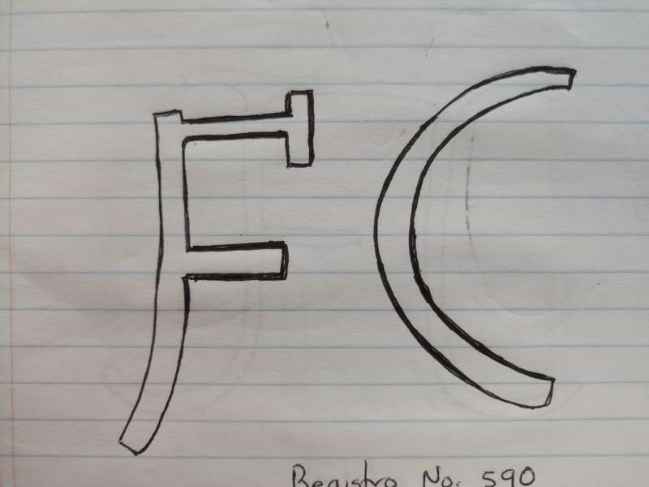 FC
Registro No. 590